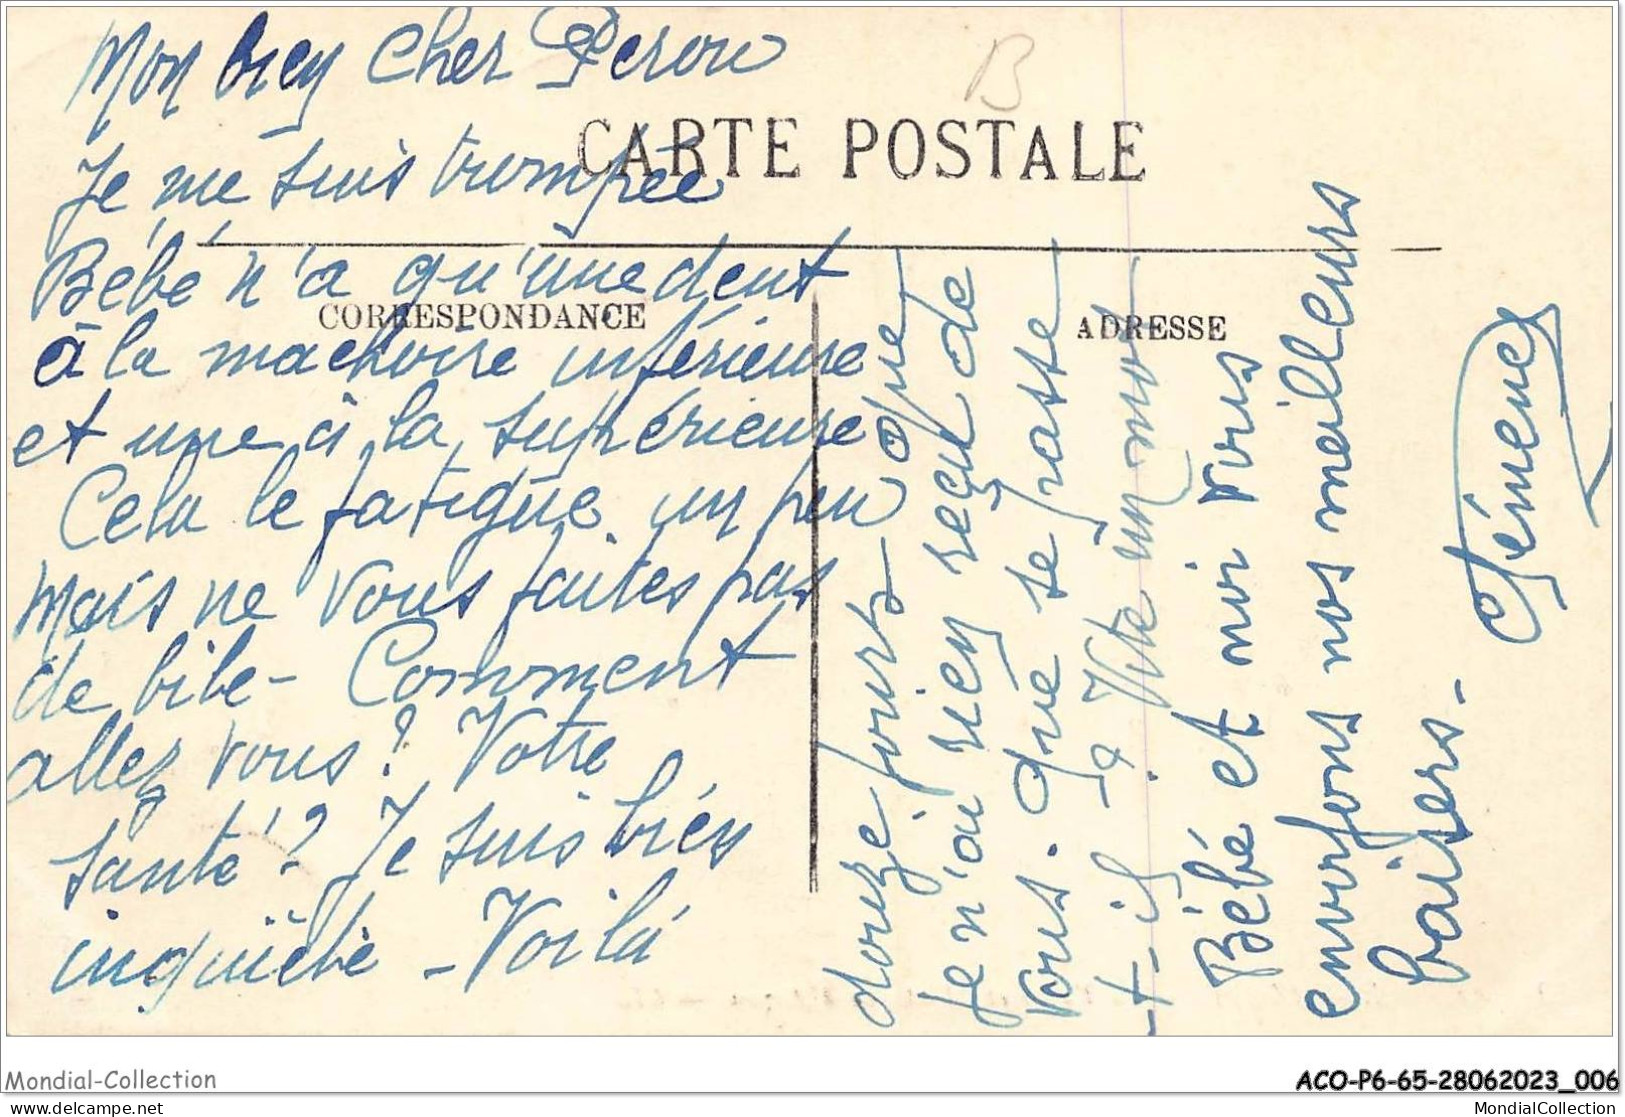 B
Mon bien Cher Perou
CARTE POSTALE
Je me suis trompée
Bébé n'a qu'une dent
CORRESPONDANCE
ADRESSE
à la machoire inférieure
et une à la supérieure
Cela le fatigue un peu
Mais ne vous faites pas
de bile - Comment
allez vous? Votre
santé? Je suis bien
inquiète - Voilà
douze jours que
je n'ai rien reçu de
vous. Que se passe
-t-il - ? Vite un mot
Bébé et moi vous
envoyons nos meilleurs
baisers -
Mondial-Collection
ACO-P6-65-28062023_006
delcampe.net
MondialCollection